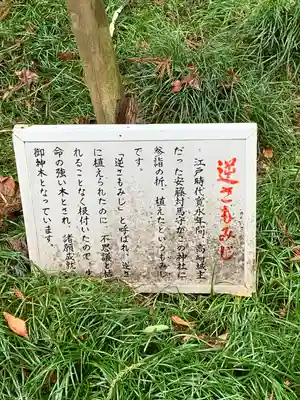 逆さもみじ
江戸時代寛永年間、高崎城主
だった安藤対馬守がこの神社に
参詣の折、植えたというもみじ
です。
「逆さもみじ」と呼ばれ、逆さ
に植えられたのに、不思議と枯
れることなく根付いたので、生
命の強い木とされ、諸願成就
御神木となっています。